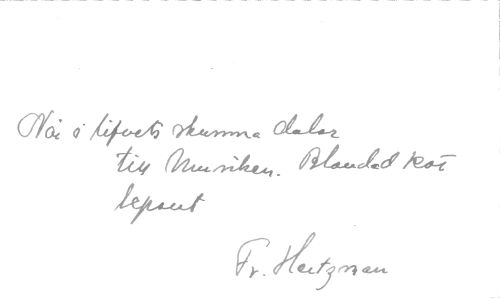 När i lifvets skumma dalar
till Musiken. Blandad kör
lepout
Fr. Hertzman